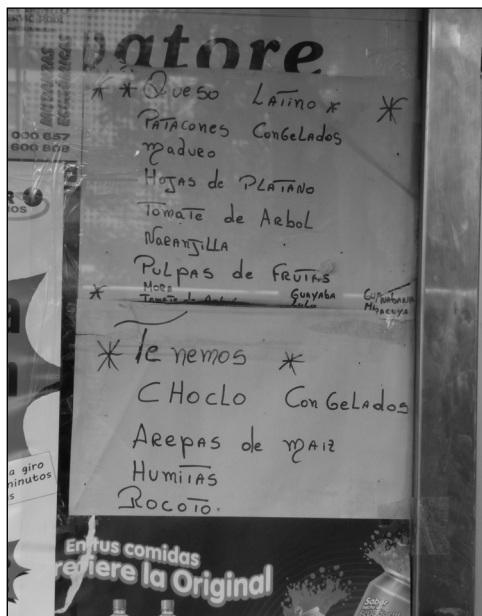 patore
* * Queso Latino * *
Patacones Congelados
Madueo
Hojas de Platano
Tomate de Arbol
Naranjilla
Pulpas de Frutas
* Mora Guayaba Guanabana
Tomate de Arbol Lulo Maracuya
* Tenemos *
Choclo Congelados
Arepas de Maiz
Humitas
Rocoto.
000 857
600 808
a giro
minutos
En tus comidas
refiere la Original
Sabor